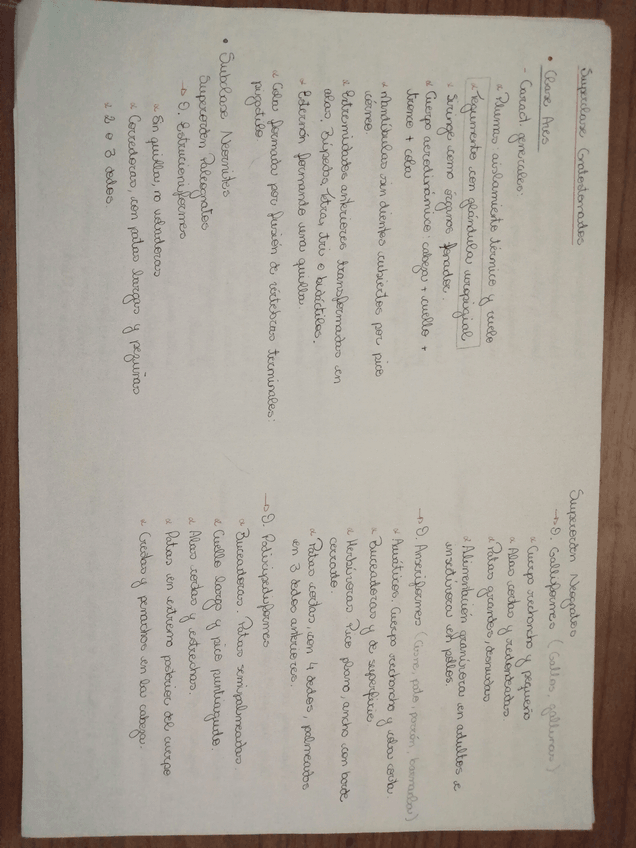 Superclase Gnatostomados
• Clase Aves
- Caract. generales:
Plumas: aislamiento térmico y vuelo
Tegumento con glándula uropigial
Siringe como órgano fonador.
Cuerpo aerodinámico: cabeza + cuello +
tronco + cola
Mandíbulas sin dientes cubiertos por pico
córneo.
Extremidades anteriores transformadas en
alas. Bípedos, tetra, tri o bidáctilos.
Esternón formando una quilla.
Cola formada por fusión de vértebras terminales:
pigostilo
• Subclase Neornites
Superorden Paleognatos
→ O. Estrucioniformes
Sin quilla, no voladoras
Corredoras, con patas largas y
2 o 3 dedos.
Superorden Neognatos
→ O. Galliformes (Gallos, gallinas)
Cuerpo rechoncho y pequeño
Alas cortas y redondeadas
Patas grandes, desnudas
Alimentación granívora en adultos e
insectívora en pollos.
→ O. Anseriformes (cisne, pato, porrón, barnacla)
Acuáticos. Cuerpo rechoncho y cola corta.
Buceadoras y de superficie
Herbívoras. Pico plano, ancho con borde
cerrado.
Patas cortas, con 4 dedos, palmeados
en 3 dedos anteriores.
→ O. Podicipediformes
Buceadoras. Patas semipalmeadas.
Cuello largo y pico puntiagudo.
Alas cortas y estrechas.
Patas en extremo posterior del cuerpo
Crestas y penachos en la cabeza.